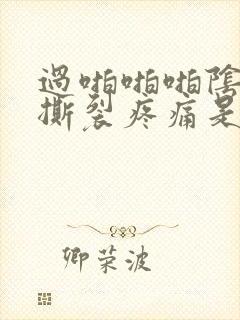 過啪啪啪陰
撕裂疼痛是
卿荣波